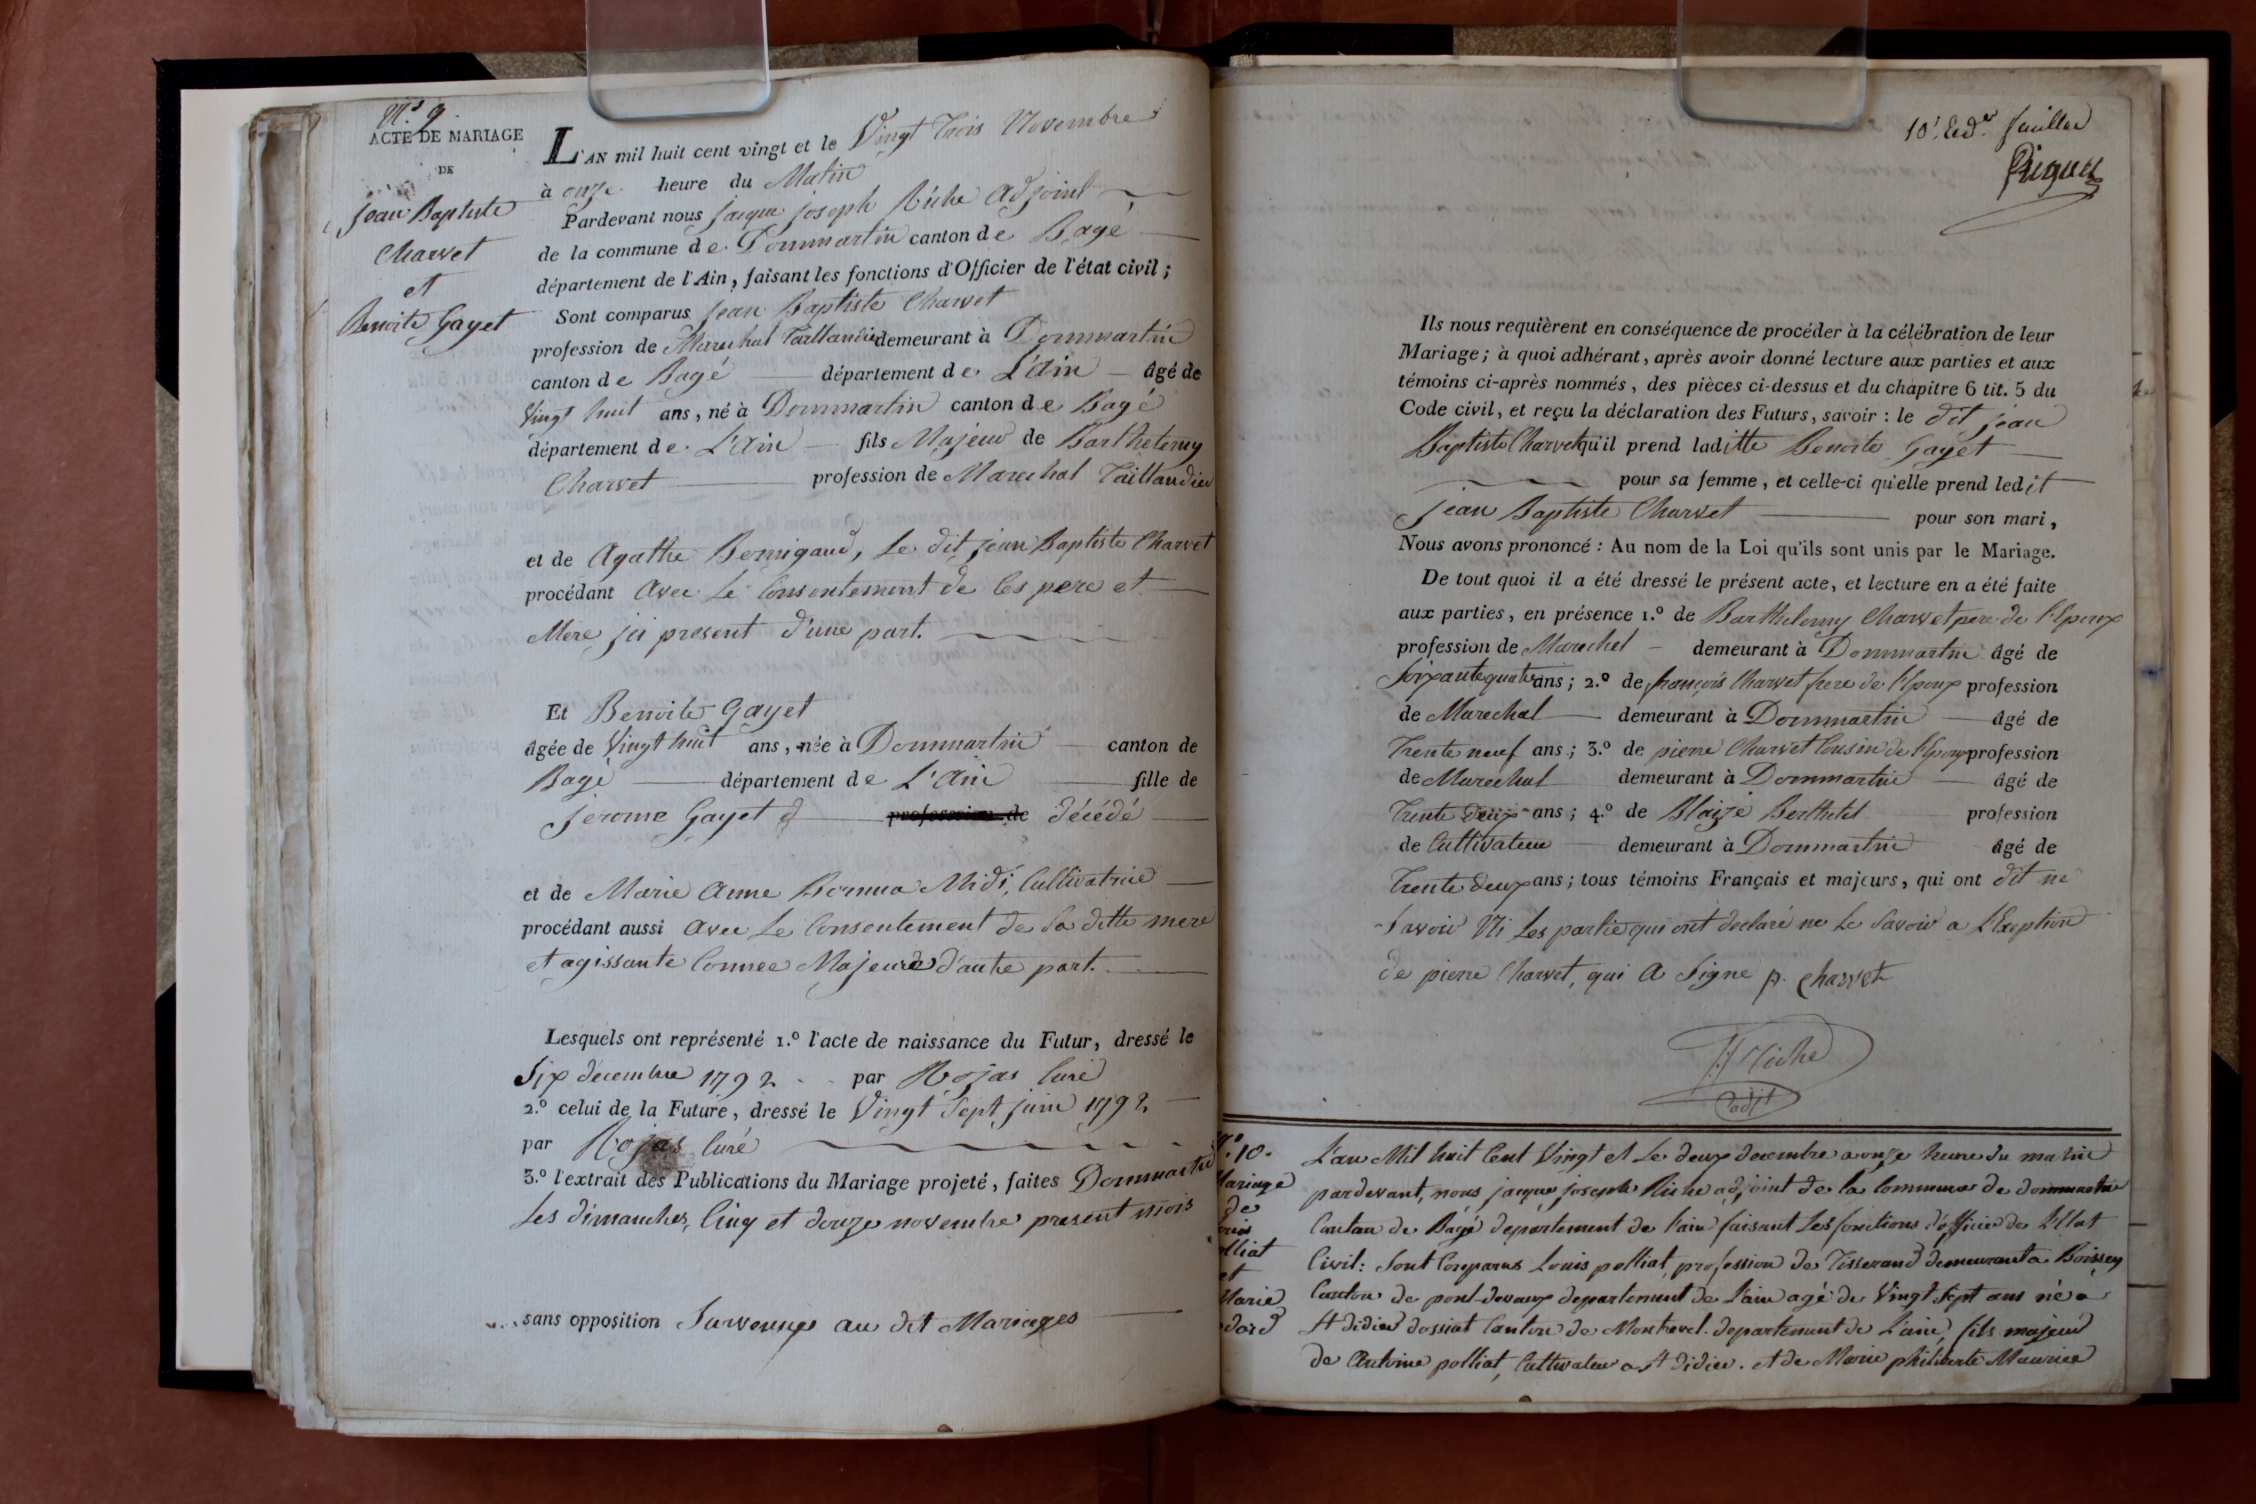 N.° 9.
ACTE DE MARIAGE
DE
jean Baptiste
Charvet
et
Benoite Gayet
L'AN mil huit cent vingt et le Vingt trois Novembre
à onze heure du Matin
Pardevant nous jacque joseph Riche Adjoint
de la commune de Dommartin canton de Bagé
département de l'Ain, faisant les fonctions d'Officier de l'état civil ;
Sont comparus jean Baptiste Charvet
profession de Marechal Taillandier demeurant à Dommartin
canton de Bagé département de L'Ain âgé de
Vingt huit ans, né à Dommartin canton de Bagé
département de L'Ain fils Majeur de Barthelemy
Charvet profession de Marechal Taillandier
et de Agathe Bernigaud, le dit jean Baptiste Charvet
procédant avec le Consentement de ses pere et
Mere ici present d'une part.
Et Benoite Gayet
âgée de Vingt huit ans, née à Dommartin canton de
Bagé département de L'Ain fille de
jerome Gayet profession de décédé
et de Marie Anne Midi, Cultivatrice
procédant aussi avec le Consentement de sa ditte mere
et agissante Comme Majeure d'autre part.
Lesquels ont représenté 1.° l'acte de naissance du Futur, dressé le
Six decembre 1792 par Rojas Curé
2.° celui de la Future, dressé le Vingt Sept juin 1792
par Rojas Curé
3.° l'extrait des Publications du Mariage projeté, faites Dommartin
Les dimanches, Cinq et douze novembre present mois
sans opposition Survenue au dit Mariages
10.e et d.er feuillet
Ils nous requièrent en conséquence de procéder à la célébration de leur
Mariage ; à quoi adhérant, après avoir donné lecture aux parties et aux
témoins ci-après nommés, des pièces ci-dessus et du chapitre 6 tit. 5 du
Code civil, et reçu la déclaration des Futurs, savoir : le dit jean
Baptiste Charvet qu'il prend laditte Benoite Gayet
pour sa femme, et celle-ci qu'elle prend ledit
jean Baptiste Charvet pour son mari,
Nous avons prononcé : Au nom de la Loi qu'ils sont unis par le Mariage.
De tout quoi il a été dressé le présent acte, et lecture en a été faite
aux parties, en présence 1.° de Barthelemy Charvet pere de l'Epoux
profession de Marechal demeurant à Dommartin âgé de
Soixante quatre ans ; 2.° de françois Charvet frere de l'Epoux profession
de Marechal demeurant à Dommartin âgé de
Trente neuf ans ; 3.° de pierre Charvet Cousin de l'Epoux profession
de Marechal demeurant à Dommartin âgé de
Trente deux ans ; 4.° de Blaize Berthelet profession
de Cultivateur demeurant à Dommartin âgé de
Trente deux ans ; tous témoins Français et majeurs, qui ont dit ne
Savoir Ni Les partie qui ont declaré ne le Savoir a L'Exeption
de pierre Charvet, qui a Signe p. charvet
JJ Riche
adjt
N.° 10.
Mariage
de
Louis
Polliat
et
Marie
L'an Mil huit Cent Vingt et Le deux decembre a onze heure du matin
pardevant, nous jacque joseph Riche adjoint de la Commune de dommartin
Canton de Bagé departement de l'ain faisant Les fonctions d'officier de l'Etat
Civil: sont Comparus Louis polliat, profession de Tisserand demeurant a Boissey
Canton de pont-devaux departement de L'ain agé de Vingt Sept ans né a
St didier dossiat Canton de Montrevel departement de L'ain, fils majeur
de Antoine polliat, Cultivateur a St didier. et de Marie philiberte Maurier